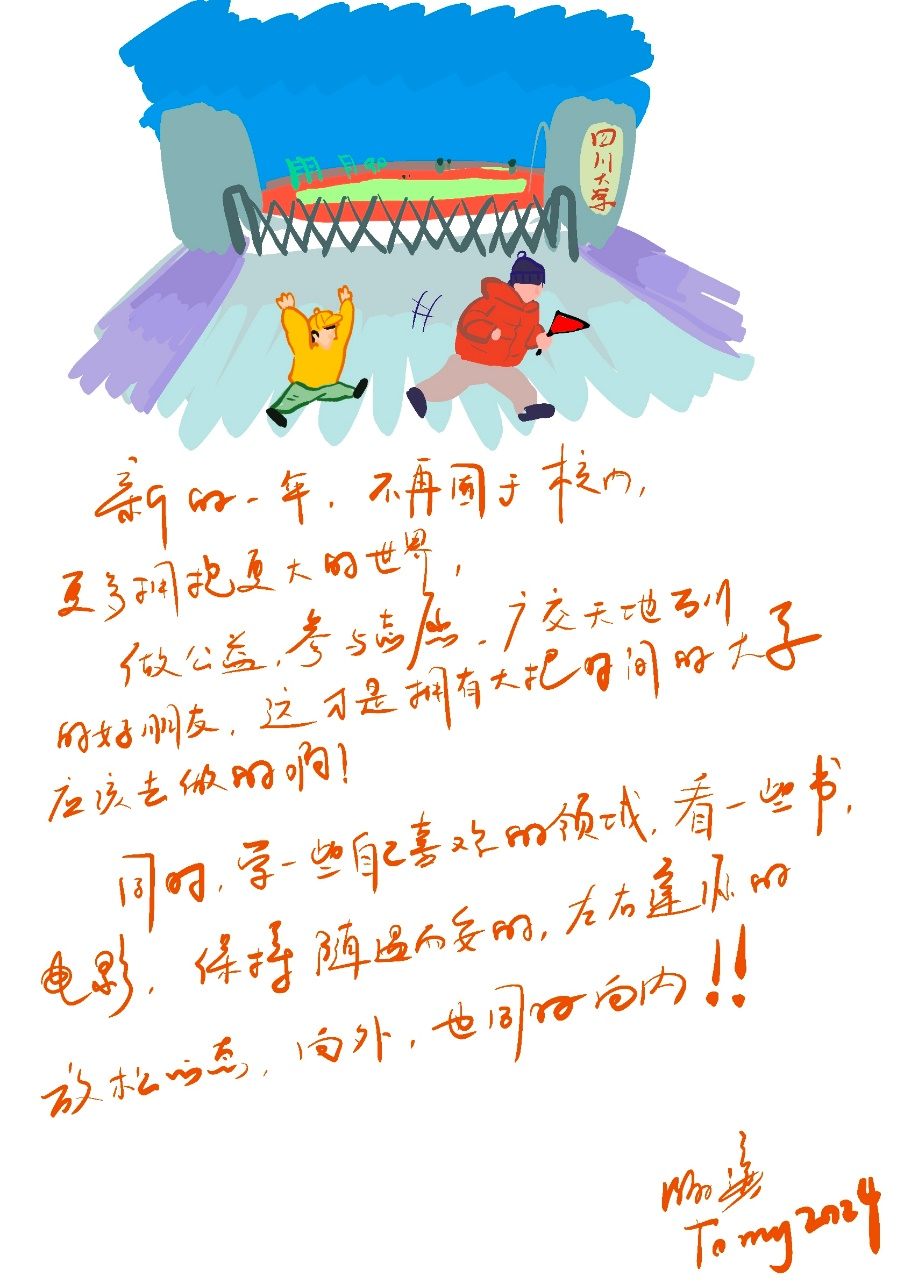 四川大学
新的一年，不再囿于校内，
更多拥抱更大的世界，
做公益，参与志愿，广交天地
的好朋友，这才是拥有大把时间的大子
应该去做的啊！
同时，学一些自己喜欢的领域，看一些书，
电影，保持随遇而安的，左右逢源的
放松心态，向外，也同时向内！！
To my 2024